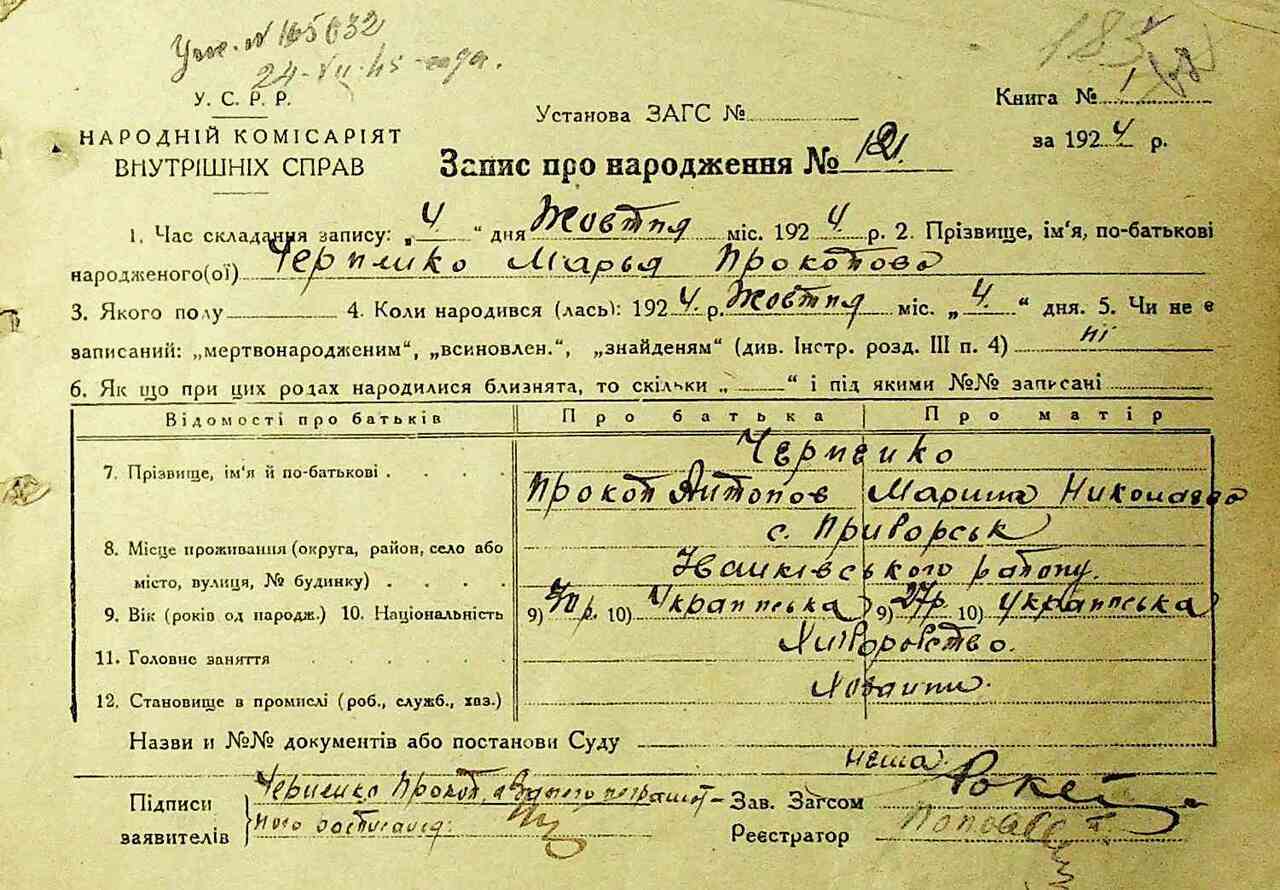 № 165632
24-VII-45 года.
У. С. Р. Р.
НАРОДНІЙ КОМІСАРІЯТ
ВНУТРІШНІХ СПРАВ
Установа ЗАГС №
Книга № 1
за 1924 р.
Запис про народження № 121.
1. Час складання запису: „4“ дня Жовтня міс. 1924 р. 2. Прізвище, ім'я, по-батькові
народженого(ої) Черненко Марья Прокопова
3. Якого полу 4. Коли народився (лась): 1924 р. Жовтня міс. „4.“ дня. 5. Чи не є
записаний: „мертвонародженим“, „всиновлен.“, „знайденям“ (див. Інстр. розд. III п. 4) ні
6. Як що при цих родах народилися близнята, то скільки „ “ і під якими №№ записані
Відомості про батьків Про батька Про матір
Черненко
7. Прізвище, ім'я й по-батькові
Прокоп Антонов Марина Николаева
с. Приборськ
8. Місце проживання (округа, район, село або
місто, вулиця, № будинку) Іванківського району.
9. Вік (років од народж.) 10. Національність 9) р. 10) Українська 9) 27 р. 10) Українська
Хліборобство.
11. Головне заняття
12. Становище в промислі (роб., служб., хвз.)
Назви и №№ документів або постанови Суду нема
Підписи Черненко Прокоп, а за него
заявителів
Зав. Загсом
Реєстратор